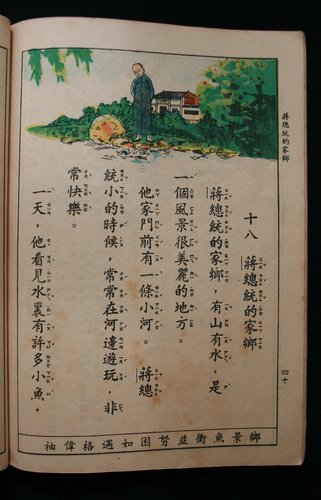 蔣總統的家鄉
四十
十八　蔣總統的家鄉
蔣總統的家鄉，有山有水，是
一個風景很美麗的地方。
他家門前有一條小河。蔣總
統小的時候，常常在河邊遊玩，非
常快樂。
一天，他看見水裏有許多小魚，
鄉景魚衝並努困如遇格偉袖